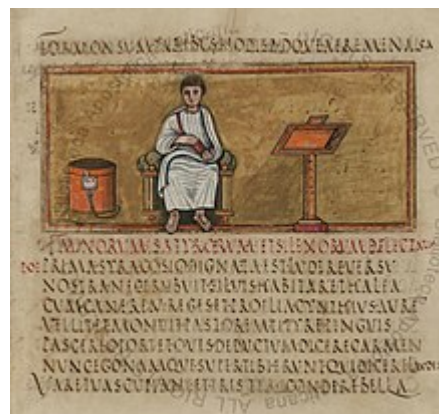 FORMONSVM PARIBVS NODIS ATQVE AERE MENALCA
SATYRORVM ET SILENORVM DELECTATIO
PRIMA SYRACOSIO DIGNATA EST LVDERE VERSV
NOSTRA NEC ERVBVIT SILVIS HABITARE THALEA
CVM CANEREM REGES ET PROELIA CYNTHIVS AVRE
VELLIT ET ADMONVIT PASTOREM TITYRE PINGVIS
PASCERE OPORTET OVES DEDVCTVM DICERE CARMEN
NVNC EGO NAMQVE SVPER TIBI ERVNT QVI DICERE LAVDES
VARE TVAS CVPIANT ET TRISTIA CONDERE BELLA